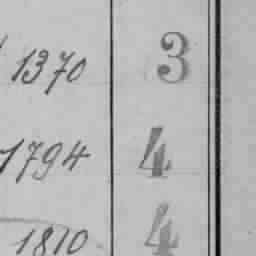 1370 3
1794 4
1810 4